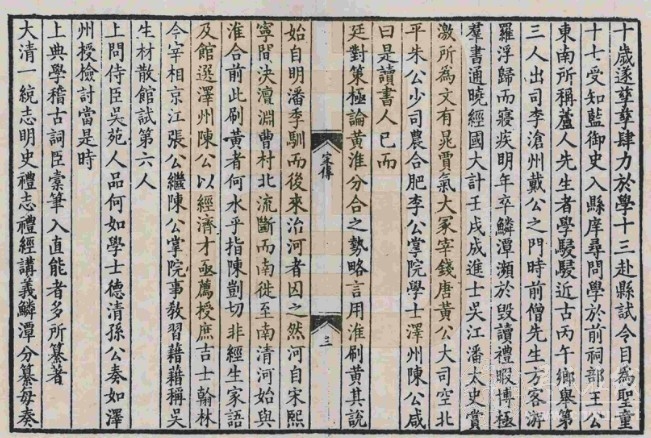 十歲遂孳孳肆力於學十三赴縣試令目為聖童
十七受知藍御史入縣庠尋問學於前祠部王公
東南所稱蘆人先生者學駸駸近古丙午鄉舉第
三人出司李滄州戴公之門時前僧先生方客游
羅浮歸而寢疾明年卒鱗潭瀕於毀讀禮暇博極
羣書通曉經國大計壬戌成進士吳江潘太史賞
激所為文有晁賈氣大冢宰錢唐黃公大司空北
平朱公少司農合肥李公掌院學士澤州陳公咸
曰是讀書人已而
廷對策極論黃淮分合之勢略言用淮刷黃其說
家傳
三
始自明潘季馴而後來治河者因之然河自宋熙
寧間決澶淵曹村北流斷而南徙至南清河始與
淮合前此刷黃者何水乎指陳剴切非經生家語
及館選澤州陳公以經濟才亟薦授庶吉士翰林
今宰相京江張公繼陳公掌院事教習藉藉稱吳
生材散館試第六人
上問侍臣吳苑人品何如學士德清孫公奏如澤
州授檢討當是時
上典學稽古詞臣橐筆入直能者多所纂著
大清一統志明史禮志禮經講義鱗潭分纂毋奏